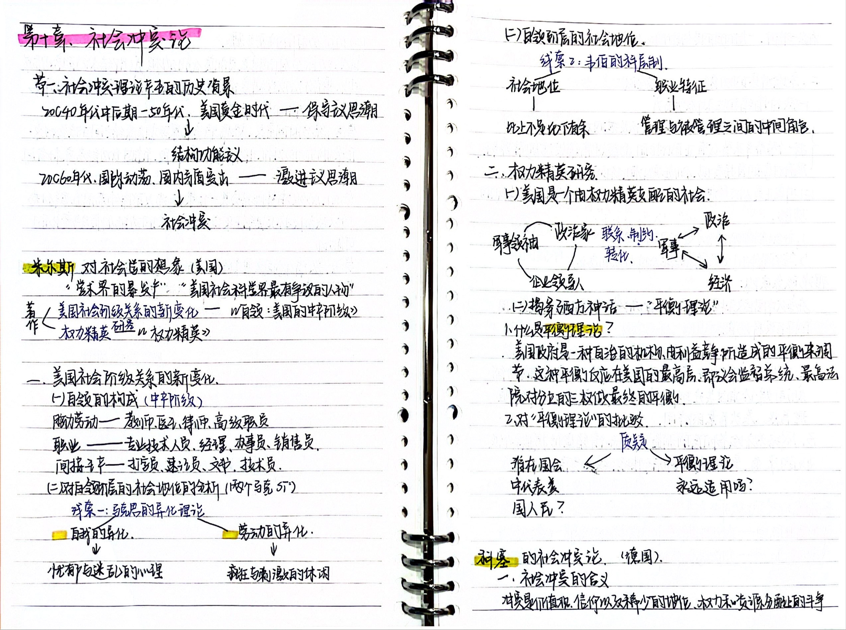 第十章、社会冲突论
节一、社会冲突理论产生的历史背景
20C40年代中后期—50年代，美国黄金时代 —— 保守主义思潮
结构功能主义
20C60年代，国际动荡、国内矛盾突出 —— 激进主义思潮
社会冲突
米尔斯 对社会学的想象（美国）
“学术界的暴发户” “美国社会科学界最有争议的人物”
著作 美国社会阶级关系的新变化 —— 《白领：美国的中产阶级》
权力精英研究 《权力精英》
一、美国社会阶级关系的新变化.
(一)白领的构成（中产阶级）
脑力劳动 —— 教师、医生、律师、高级职员
职业 —— 专业技术人员、经理、办事员、销售员.
间接生产 —— 打字员、速记员、文书、技术员.
(二)对白领阶层的社会地位的分析（两个线索）
线索一：马克思的异化理论
自我的异化. 劳动的异化.
忧郁与迷乱的心理 疯狂与刺激的休闲
(二)白领阶层的社会地位.
线索2：韦伯的科层制.
社会地位 职业特征
比上不足比下有余 管理与被管理之间的中间角色.
二、权力精英研究
(一)美国是一个由权力精英支配的社会.
军事领袖 政治家 企业领导人
联系、制约、转化.
政治 军事 经济
(二)揭穿西方神话 —— “平衡理论”
1.什么是平衡理论？
美国政府是一种自治的机构，由利益竞争所造成的平衡来调
节，这种平衡反应在美国的最高层，即议会监督总统、最高法
院对分立的三权做最终的平衡.
2.对“平衡理论”的批驳.
质疑
谁在国会中代表美国人民？
平衡理论永远适用吗？
科塞 的社会冲突论.（德国）.
一、社会冲突的含义
冲突是价值观、信仰以及稀少的地位、权力和资源分配上的斗争